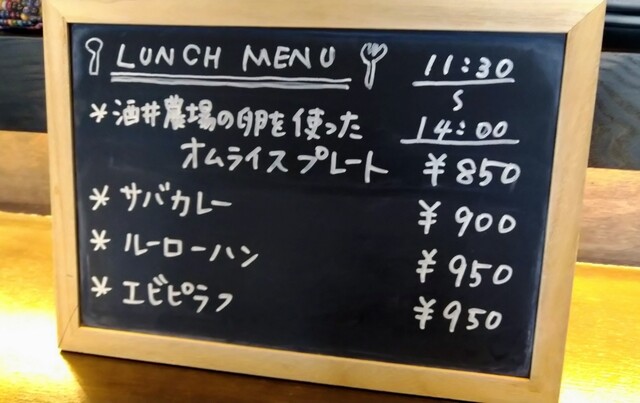 LUNCH MENU
11:30
〜
14:00
＊酒井農場の卵を使った
オムライスプレート ¥850
＊サバカレー ¥900
＊ルーローハン ¥950
＊エビピラフ ¥950